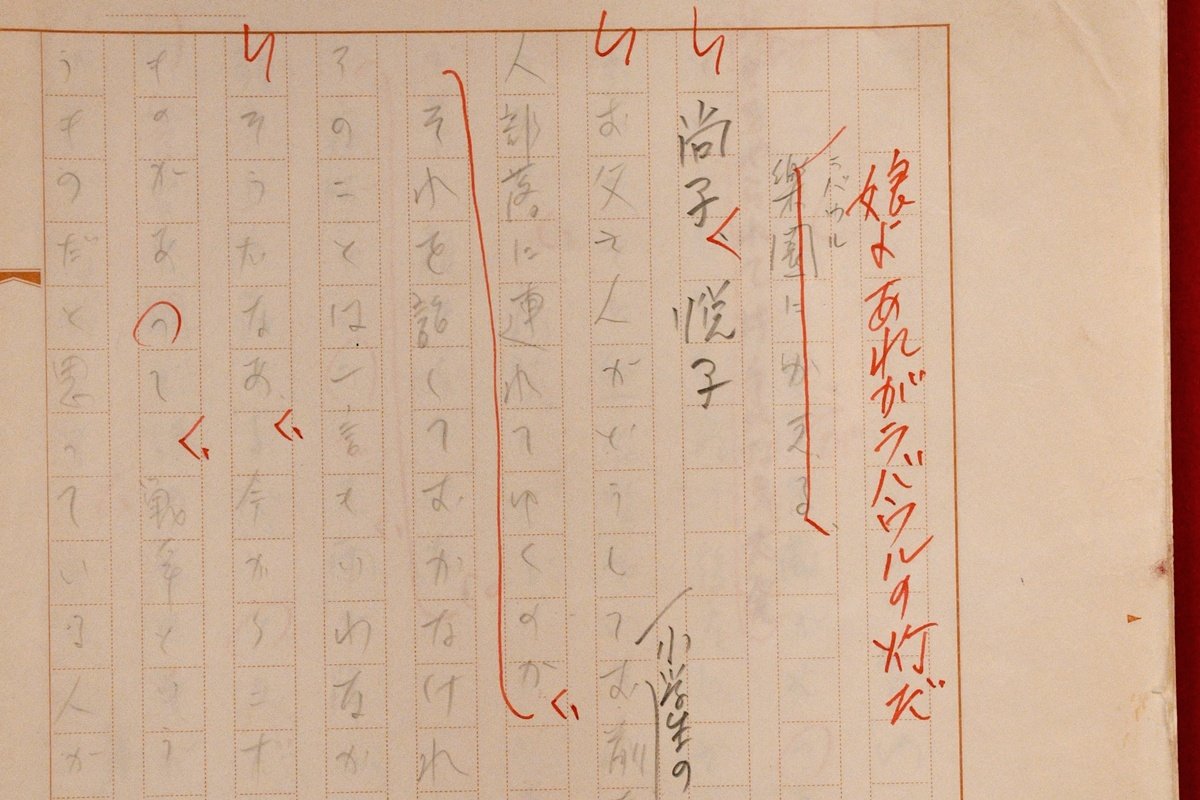 娘よあれがラバウルの灯だ
ラバウル
楽園にかえる
尚子 悦子
小学生の
お父さんがどうしてお前
人部落に連れてゆくのか
それを話しておかなけれ
そのことは一言もいわなか
そうだなあ 今から
ものがあって 戦争という
うものだと思っている人が